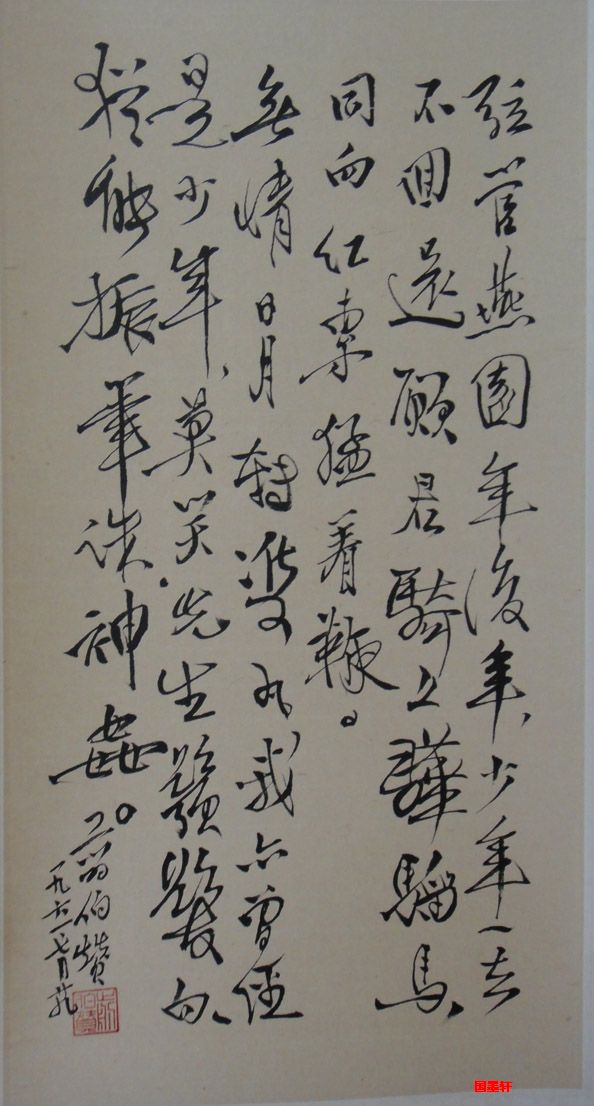 弦管燕園年復年、少年一去
不回還願君騎上驊騮馬
同向紅專猛着鞭。
無情日月轉雙丸我亦曾經
是少年、莫笑先生鬚髮白、
猶能振筆誅神姦。
翦伯贊
一九六一七月
国墨轩